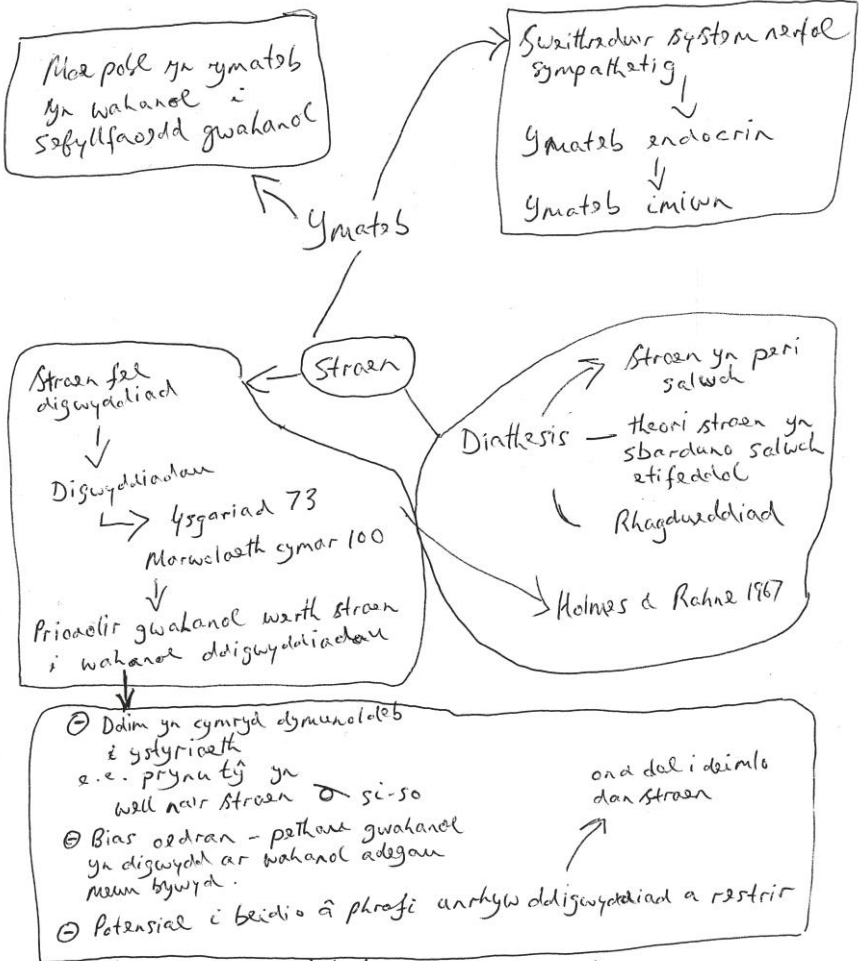 Mae pobl yn ymateb
yn wahanol i
sefyllfaoedd gwahanol
Gweithredu'r system nerfol
sympathetig
Ymateb endocrin
Ymateb imiwn
Ymateb
Straen
Straen fel
digwyddiad
Digwyddiadau
Ysgariad 73
Marwolaeth cymar 100
Priodolir gwahanol werth straen
i wahanol ddigwyddiadau
Diathesis
Straen yn peri
salwch
theori straen yn
sbarduno salwch
etifeddol
Rhagdueddiad
Holmes & Rahne 1967
⊖ Ddim yn cymryd dymunoldeb
i ystyriaeth
e.e. prynu tŷ yn
well na'r straen si-so
⊖ Bias oedran - pethau gwahanol
yn digwydd ar wahanol adegau
mewn bywyd.
⊖ Potensial i beidio â phrofi unrhyw ddigwyddiad a restrir
ond dal i deimlo
dan straen